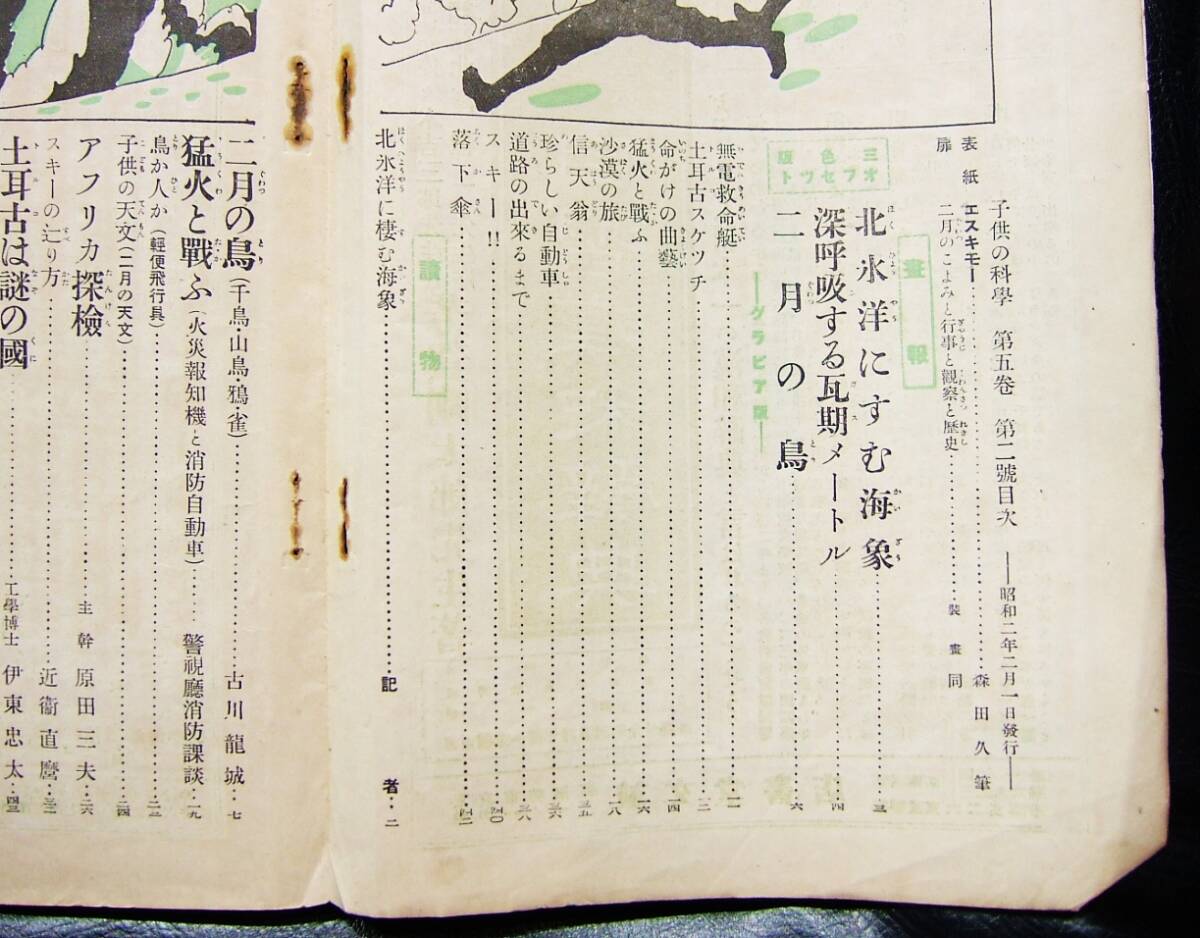 子供の科學 第五卷 第二號目次 ――昭和二年二月一日發行――
表紙 エスキモー……森田久筆
扉 二月のこよみと行事と觀察と歴史……裝畫 同
畫報
三色版
オフセット
北氷洋にすむ海象……三
深呼吸する瓦斯メートル……四
二月の鳥……六
――グラビア版――
無電救命艇……一一
土耳古スケツチ……一三
命がけの曲藝……一四
猛火と戰ふ……一六
沙漠の旅……一八
信天翁……三五
珍らしい自動車……三六
道路の出來るまで……三八
スキー!!……四〇
落下傘……四二
讀物
北氷洋に棲む海象……記者……二
二月の鳥(千鳥・山鳥・鴉・雀)……古川龍城……七
猛火と戰ふ(火災報知機と消防自動車)……警視廳消防課談……一九
鳥か人か(輕便飛行具)……二三
子供の天文(二月の天文)……二四
アフリカ探檢……主幹 原田三夫……二六
スキーの辷り方……近衞直麿……三二
土耳古は謎の國……工學博士 伊東忠太……四三